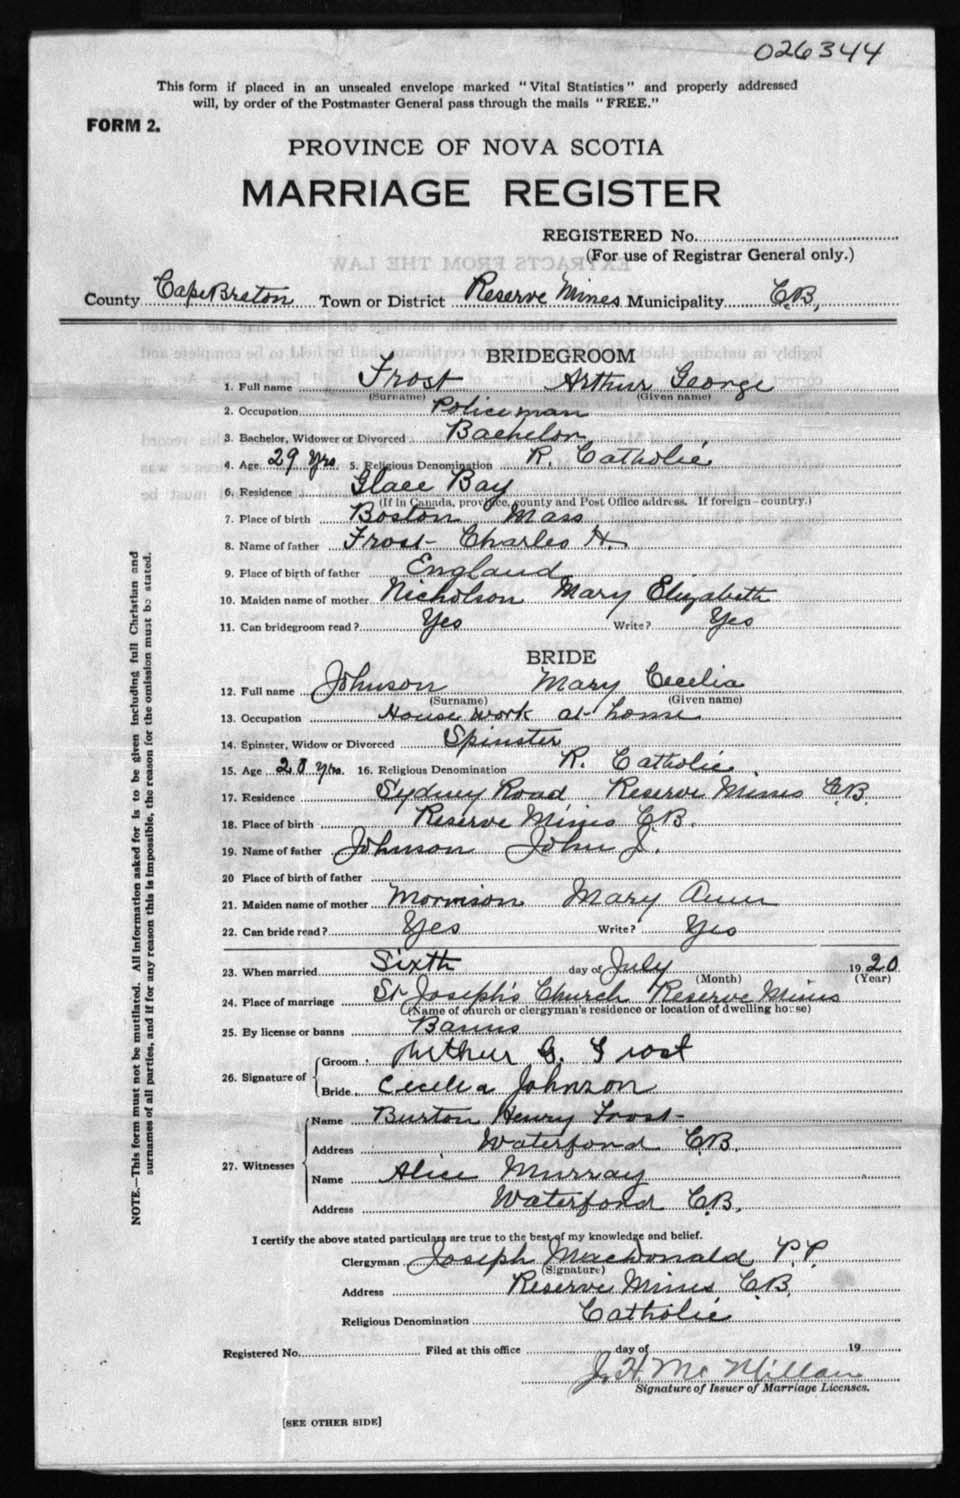 026344
This form if placed in an unsealed envelope marked "Vital Statistics" and properly addressed
will, by order of the Postmaster General pass through the mails "FREE."
FORM 2.
PROVINCE OF NOVA SCOTIA
MARRIAGE REGISTER
REGISTERED No.
(For use of Registrar General only.)
County Cape Breton Town or District Reserve Mines Municipality C.B,
BRIDEGROOM
1. Full name Frost Arthur George
(Surname) (Given name)
2. Occupation Policeman
3. Bachelor, Widower or Divorced Bachelor
4. Age 29 yrs 5. Religious Denomination R. Catholic
6. Residence Glace Bay
(If in Canada, province, county and Post Office address. If foreign—country.)
7. Place of birth Boston Mass
8. Name of father Frost Charles H.
9. Place of birth of father England
10. Maiden name of mother Nicholson Mary Elizabeth
11. Can bridegroom read? Yes Write? Yes
BRIDE
12. Full name Johnson Mary Cecelia
(Surname) (Given name)
13. Occupation House work at home
14. Spinster, Widow or Divorced Spinster
15. Age yrs. 16. Religious Denomination R. Catholic
17. Residence Sydney Road Reserve Mines C.B.
18. Place of birth Reserve Mines C.B.
19. Name of father Johnson John J.
20 Place of birth of father
21. Maiden name of mother Morrison Mary Ann
22. Can bride read? Yes Write? Yes
23. When married Sixth day of July 1920
(Month) (Year)
24. Place of marriage St Joseph's Church Reserve Mines
(Name of church or clergyman's residence or location of dwelling house)
25. By license or banns Banns
26. Signature of Groom Arthur G. Frost
Bride Cecelia Johnson
27. Witnesses Name Burton Henry Frost
Address Waterford C.B.
Name Alice Murray
Address Waterford C.B.
I certify the above stated particulars are true to the best of my knowledge and belief.
Clergyman Joseph MacDonald P.P.
(Signature)
Address Reserve Mines C.B.
Religious Denomination Catholic
Registered No. Filed at this office day of 19
J. H. McMillan
Signature of Issuer of Marriage Licenses.
[SEE OTHER SIDE]
NOTE.—This form must not be mutilated. All information asked for is to be given including full Christian and
surnames of all parties, and if for any reason this is impossible, the reason for the omission must be stated.